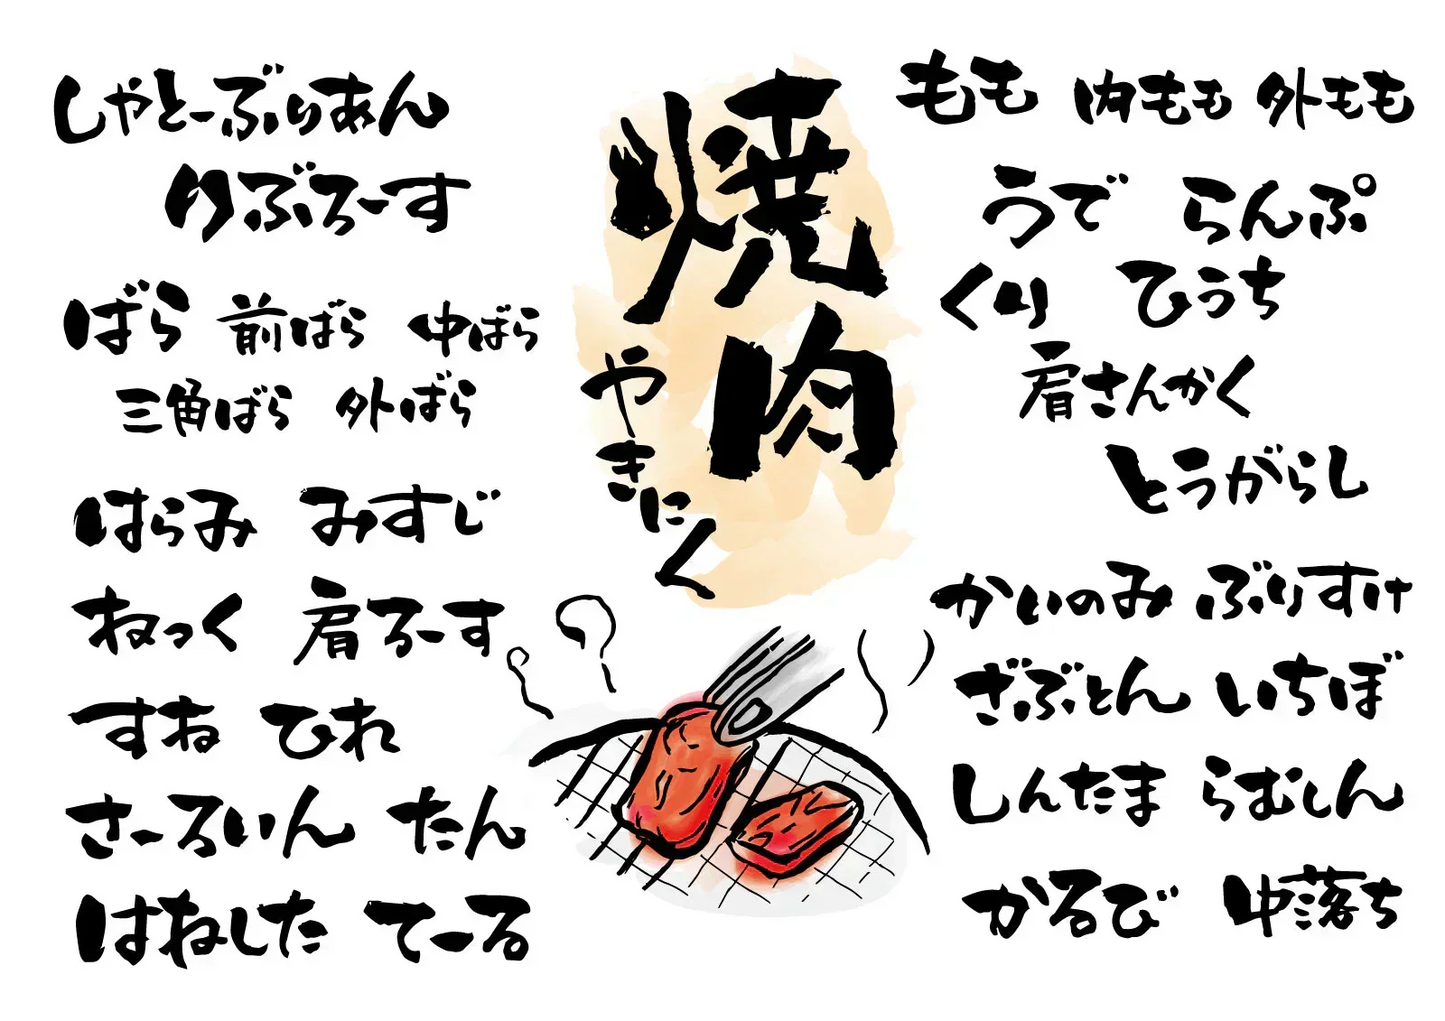 しゃとーぶりあん
りぶろーす
ばら 前ばら 中ばら
三角ばら 外ばら
はらみ みすじ
ねっく 肩ろーす
すね ひれ
さーろいん たん
はねした てーる
焼肉
やきにく
もも 肉もも 外もも
うで らんぷ
くり ひうち
肩さんかく
とうがらし
かいのみ ぶりすけ
ざぶとん いちぼ
しんたま らむしん
かるび 中落ち